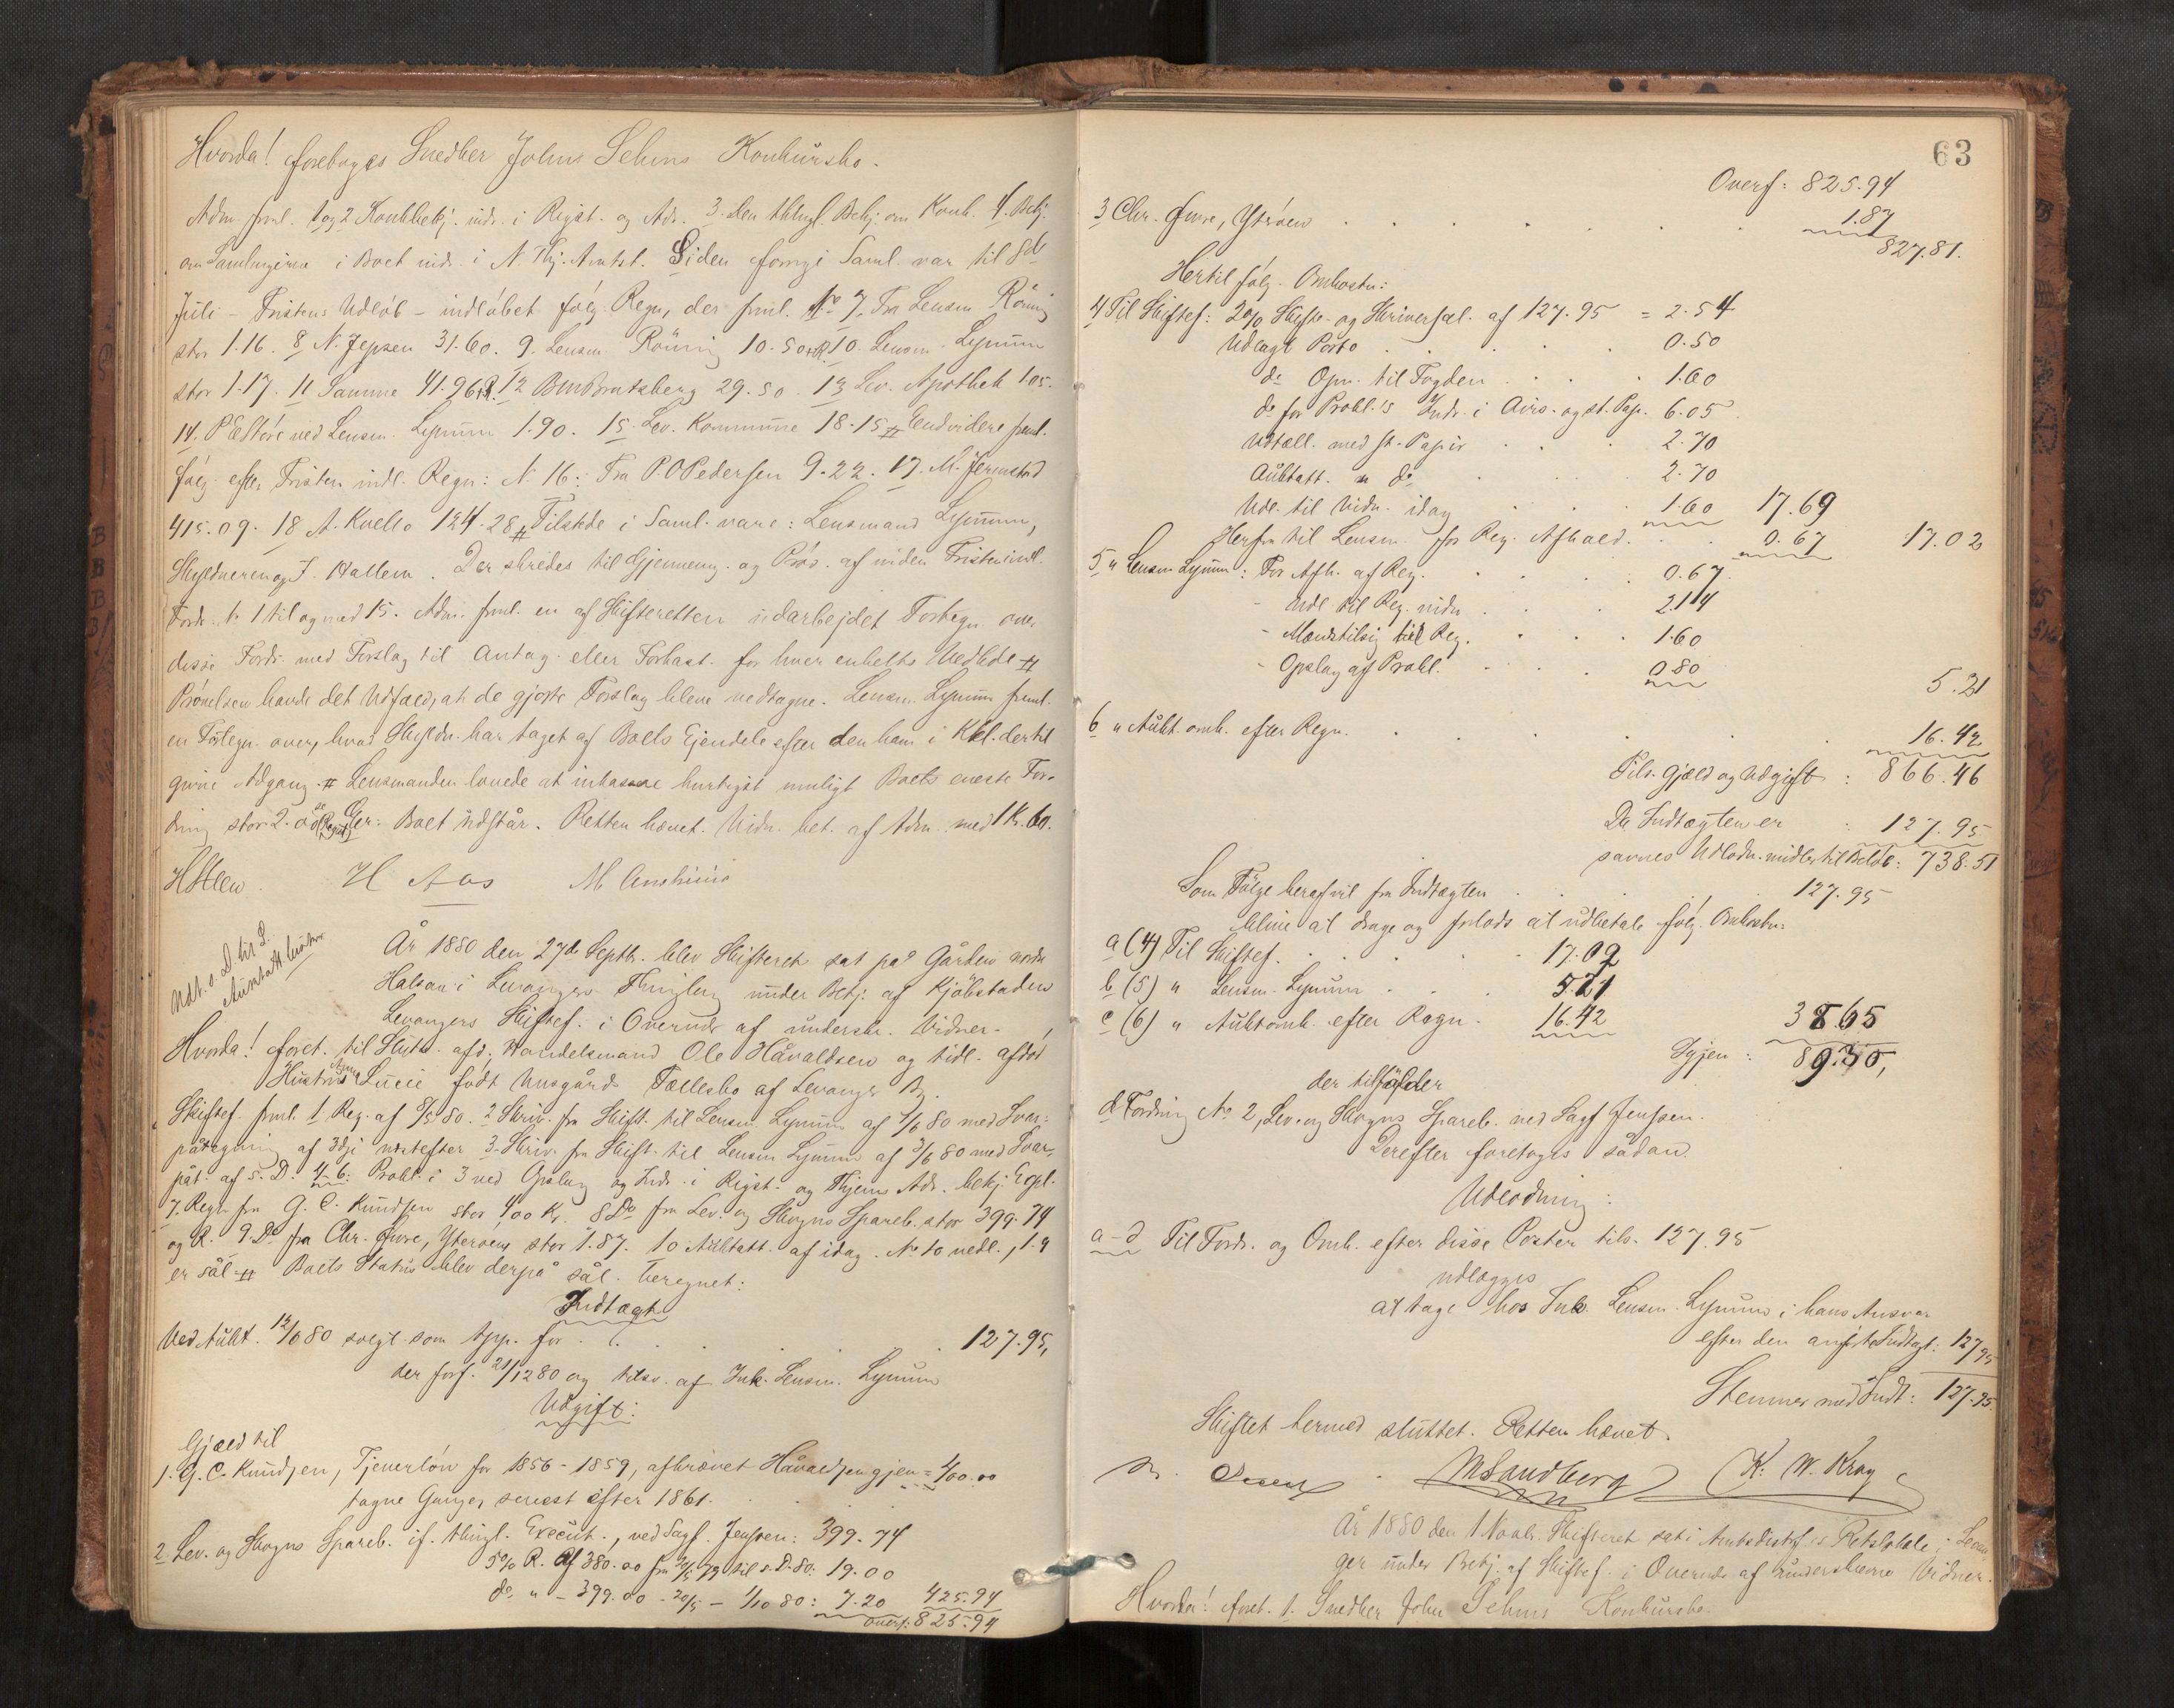 Hvorda! foretoges Snedker Johns Sehms Konkursbo.
Adm. freml. 1 og 2 Konkbekj. indr. i Rigst. og Adr. 3. den thingl. Bekj. om Konk. 4. Bekj.
om Samlingerne i Boet indr. i N. Thj. Amtst. Siden forrige Saml. var til 8de
Juli - Fristens Udløb - indløbet følg. Regn., der freml. No 7. Fra Lensm. Rönning
stor 1.16. 8 N. Jepsen 31.60. 9. Lensm. Rönning 10.50 + R. 10. Lensm. Lynum
stor 1.17. 11 Samme 41.96 + R. 12 Bratsberg 29.50. 13 Lev. Apothek 1.05.
14. ved Lensm. Lynum 1.90. 15. Lev. Kommune 18.15 # Endvidere freml.
følg. efter Fristen indl. Regn: N. 16: Fra P. O Pedersen 9.22. 17. M. Jermstad
415.09. 18 A. Kvello 124.28 # Tilstede i Saml. vare: Lensmand Lynum,
Skyldneren og J. Hallem. Der skredes til Gjennemg. og Prøv. af inden Fristen indl.
Fordr. No 1 til og med 15. Adm. freml. en af Skifteretten udarbejdet Fortegn. over
disse Fordr. med Forslag til Antag. eller Forkast. for hver enkelts Vedkde #
Prøvelsen havde det Udfald, at de gjorte Forslag bleve vedtagne. Lensm. Lynum freml.
en Fortegn. over, hvad Skyldn. har taget af Boets Ejendele efter den ham i Kkl. dertil
givne Adgang. # Lensmanden lovede at inkassere hurtigst muligt Boets eneste For-
dring stor 2.00 Boet udstår. Retten hævet. Vidn. bet. af Adm. med 1 Kr. 60.
H. Aas
Udt. o. D. til L.
År 1880 den 27de Septb. blev Skifteret sat på Gården nordre
Halsan i Levangers Thinglag under Bekj. af Kjöbstaden
Levangers Skiftef. i Overvær af underskr. Vidner.
Hvorda! foret. til Skifte afd. Handelsmand Ole Håvaldsen og tidl. afdöd
Hustru Lucie født Husgård Fællesbo af Levanger By.
Skiftef. freml. 1 Reg. af 8/5 80. 2 Skriv. fra Skift. til Lensm. Lynum af 1/6 80 med Svar-
påtegning af 3die næstefter 3. Skriv. fra Skift. til Lensm. Lynum af 3/6 80 med Svar-
påt. af s. D. 4-6: Prokl. i 3 ved Opslag og Indr. i Rigst. og Thjems Adr. bekj. Expl.
7. Regn. fra G. C. Knudsen stor 400 Kr. 8 Do fra Lev. og Skogns Spareb. stor 399.74
og R. 9. Do fra Chr. Øvre, Yterøen, stor 1.87. 10 Auktatt. af idag. No 10 vedl., 1-9
er sål. # Boets Status blev derpå sål. beregnet:
Indtægt
Ved Aukt. 12/6 80 solgt som opg. for . . . . 127.95,
der forf. 21/12 80 og tilsv. af Ink. Lensm. Lynum
Udgift:
Gjæld til
1. G. C. Knudsen, Tjenerlön for 1856-1859, afkrævet Håvaldsen gjen- = 400.00
tagne Ganger senest efter 1861. . .
2. Lev. og Skogns Spareb. if. thingl. Execut., ved Sagf. Jenssen: 399.74
5% R. af 380.00 fra 20/5 79 til s. D. 80: 19.00
do " - 399.00 - 20/5 - 1/10 80: 7.20 425.94
overf: 825.94
63
Overf: 825.94
3 Chr. Øvre, Ytröen . . . . . . 1.87
827.81.
Hertil følg. Omkostn:
4 Til Skiftef: 2% Skifte- og Skriversal. af 127.95 = 2.54
Udlagt Porto . . . . 0.50
do Opn. til Fogden . . . 1.60
do for Prokl.'s Indr. i Avis. og st. Pap. 6.05
Udtæll. med st. Papir . . . 2.70
Auktatt. " do . . . 2.70
Udl. til Vidn. idag . . . 1.60 17.69
Herfra til Lensm for Reg. Afhold. . . 0.67 17.02
5 " Lensm Lynum: For Afh. af Reg. . . . 0.67.
- Udl til Reg. vidn . . . 2.14
- Mændstilsig. til Reg. . . . 1.60
- Opslag af Prokl. . . . 0.80
5.21
6 " Aukt. omk. efter Regn. . . . . . 16.42
Tils. Gjæld og Udgift : 866.46
Da Indtægten er : 127.95
savnes Udlodn. midler til Beløb: 738.51
Som Følge heraf vil fra Indtægten . . . 127.95
blive at drage og forlods at udbetale følg. Omkostn:
a (4) Til Skiftef. . . . . 17.02
b (5) " Lensm. Lynum . . . 5.21
c (6) " Auktomk. efter Regn. 16.42 38.65
Igjen: 89.30,
der tilfalder
d Fordring No 2, Lev. og Skogns Spareb. ved Sagf Jenssen.
Derefter foretoges sådan
Udlodning:
a-d Til Fordr. og Omk. efter disse Poster tils. 127.95
udlægges
at tage hos Ink. Lensm. Lynum i hans Ansvar
efter den anførte Indtægt: 127.95
Stemmer med Indt: 127.95.
Skiftet hermed sluttet. Retten hævet.
M Sandberg K. W. Krag
År 1880 den 1 Novb. Skifteret sat i Amtsdistr.'s Retslokale i Levan-
ger under Bekj. af Skiftef. i Overvær af underskrevne Vidner.
Hvorda! foret. 1. Snedker John Sehms Konkursbo.